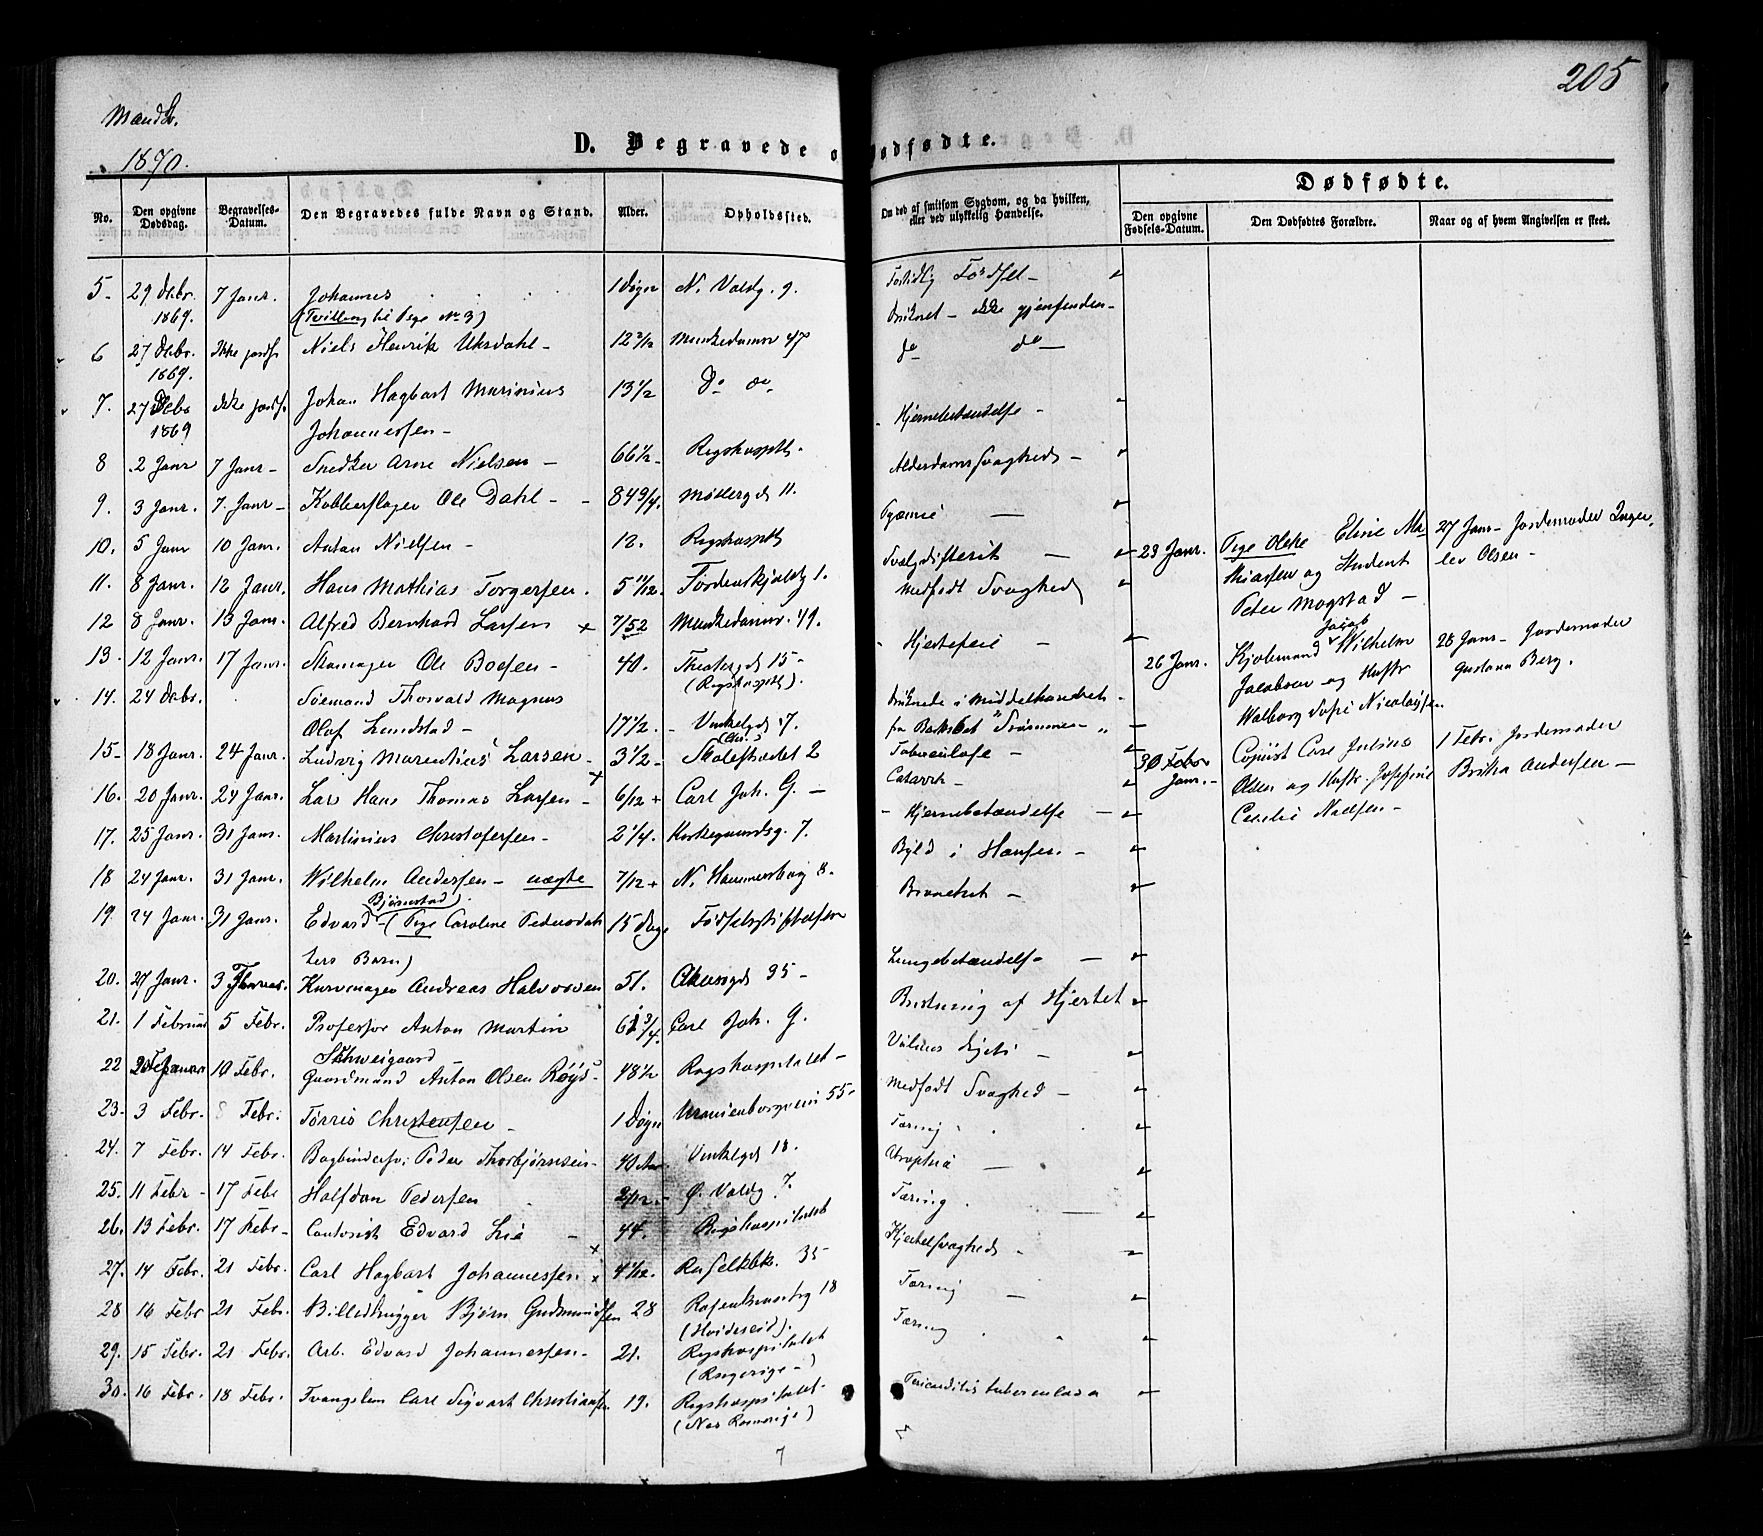 205
Mandk.
1870.
D. Begravede o
Dødfødte.
Dødfødte.
No. Den opgivne Dødsdag. Begravelses-Datum. Den Begravedes fulde Navn og Stand. Alder. Opholdssted. Om død af smitsom Sygdom, og da hvilken, eller ved ulykkelig Hændelse. Den opgivne Fødsels-Datum. Den Dødfødtes Forældre. Naar og af hvem Angivelsen er skeet.
5 29 Debr. 7 Janr. Johannes 1 Døgn N. Valdg. 9. Fortidlig Fødsel
1869. (Tvilling til Pige No 3)
6 27 Debr. Ikke jordf. Niels Henrik 12 3/12 Munkedamsv 47 Druknet – ikke gjenfunden
1869.
7. 27 Debr ikke jordf. Johan Hagbart Marinius 13 1/2 Do do do do
1869 Johannessen
8 2 Janr 7 Janr Snedker Arne Nielsen 66 1/2 Rigshospth. Hjernebetændelse
9. 3 Janr. 7. Janr Kobberslager Ole Dahl 84 3/4 Møllergd 11. Alderdomssvaghed
10. 5 Janr 10 Janr. Anton Nielsen 12. Rigshospth Pyæmie
11. 8 Janr. 12 Janr. Hans Mathias Torgersen. 5 11/12 Tordenskjoldg 1. Svælgdifterit
12 8 Janr. 13 Janr. Alfred Bernhard Larsen x 7/52 Munkedamsv. 49. Medfødt Svaghed
13. 12 Janr. 17 Janr. Skomager Ole Boesen 40. Theatergd 15 Hjertefeil
(Rigshospth).
14. 24 Debr. Sømand Thorvald Magnus Druknede i Middelhavet
Olaf Lundstad 17 1/2 Vinkelgd 7. fra "Trømmen"
15 18 Janr. 24 Janr. Ludvig Marentius Larsen 3 1/2 2 Tuberculose
16. 20 Janr. 24 Janr. Lars Hans Thomas Larsen x 6/12 + Carl Joh. G. Catarrh
17. 25 Janr. 31 Janr. Martinius Christofersen 2 1/4. Kirkegaardsg. 7. Hjernebetændelse
18 24 Janr. 31 Janr. Wilhelm Andersen – uægte 7/12 + N. Hammersborg 8. Byld i Halsen
19. 24 Janr. 31 Janr. Edvard Bjørnstad (Pige Caroline Pedersdat 15 Dage Fødselsstiftelsen Bronchit
ters Barn)
20. 27 Janr. 3 Febr. Kurvmager Andreas Halvorsen 51. Akersgd 35 Lungebetændelse
21. 1 Februar 5 Febr. Professor Anton Martin 61 3/4 Carl Joh. G. Bristning af Hjertet
Schweigaard
22 10 Febr. Gaardmand Anton Olsen Røys 48 1/2 Rigshospitalet Vitium
23. 3 Febr. 8 Febr. Torris Christensen 1 Døgn Uranienborgveien 55 Medfødt Svaghed
24. 7 Febr. 14 Febr. Bogbindersv. Peder Thorbjørnsen 40 Aar Vinkelgd 18. Tæring
25. 11 Febr 17 Febr Halfdan Pedersen 2/12 Ø. Voldg 7. Atrophia
26. 13 Febr. 17 Febr Contorist Edvard Lie 44. Rigshospitalet Tæring
27. 14 Febr. 21 Febr. Carl Hagbart Johannessen x 4/12. 35 Kjertelsvaghed
28 16 Febr 21 Febr. Billedhugger Bjørn Gudmundsen 28 18 Tæring
(Hvideseid).
29. 15 Febr. 21 Febr. Arb. Edvard Johannessen 21. Rigshospitalet Tæring
(Ringerige)
30. 16 Febr. 18 Febr. Carl Sigvart Christiansen 19. Rigshospitalet Pericarditis tuberculosa
(Nes Romerige)
7
23 Janr. Pige Oleke Eline Ma 27 Janr Jordemoder Inge
thiasen og Student lev Olsen
Peter Mogstad
26 Janr. Jacob Wilhelm 28 Janr Jordemoder
Jacobsen og Hustr Gustava Berg.
Walborg Sofie Nicolaysen
30 Janr. Copiist Carl Julius 1 Febr. Jordemoder
Olsen og Hustr. Josefine Britha Andersen
Cecilie Nielsen